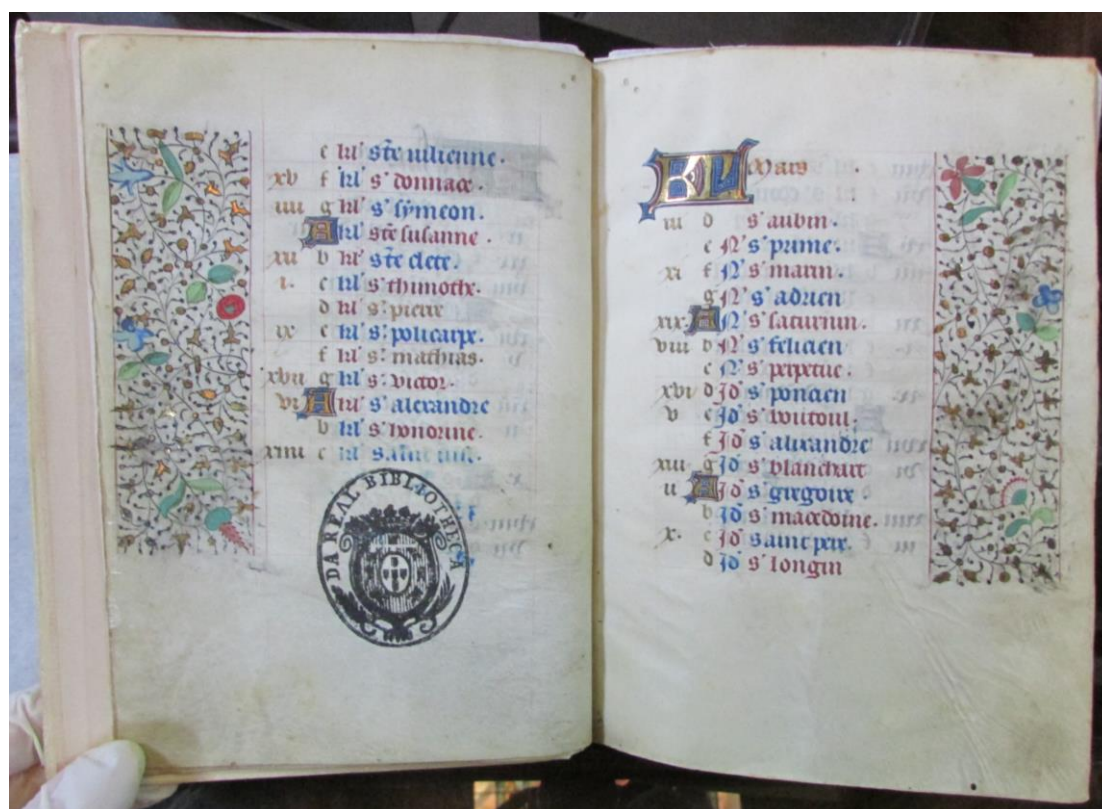 e kl' ste iulienne.
xv f kl' s' donnace.
iiii g kl' s' symeon.
A kl' ste susanne.
xii b kl' ste clere.
i. c kl' s' thimothe.
d kl' s' pierre
ix e kl' s' policarpe.
f kl' s' mathias.
xvii g kl' s' victor.
vi A kl' s' alexandre
b kl' s' honorine.
xiiii c kl' saint
DA REAL BIBLIOTHECA
KL Mars
iii d s' aubin.
e N' s' prime.
xi f N' s' marin.
g N' s' adrien
xix A N' s' saturnin.
viii b N' s' felicien
c N' s' perpetue.
xvi d Id' s' poncien
v e Id' s'
f Id' s' alixandre
xiii g Id' s' blanchart
ii A Id' s' gregoire
b Id' s' macedoine.
x. c Id' saint
d Id' s' longin